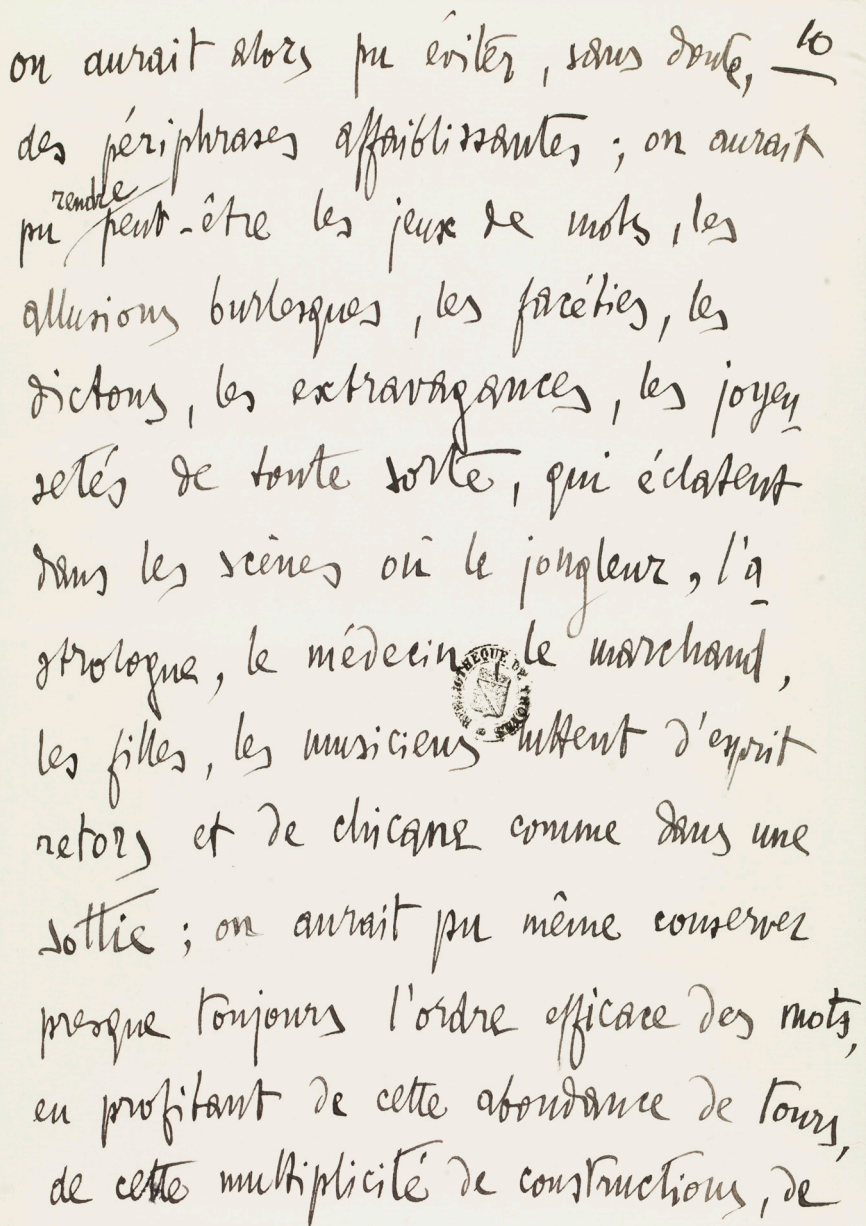 10
on aurait alors pu éviter, sans doute,
des périphrases affaiblissantes ; on aurait
pu rendre peut-être les jeux de mots, les
allusions burlesques, les facéties, les
dictons, les extravagances, les joyeu
setés de toute sorte, qui éclatent
dans les scènes où le jongleur, l'a
strologue, le médecin, le marchand,
les filles, les musiciens luttent d'esprit
retors et de chicane comme dans une
sottie ; on aurait pu même conserver
presque toujours l'ordre efficace des mots,
en profitant de cette abondance de tours,
de cette multiplicité de constructions, de
BIBLIOTHEQUE DE TROYES